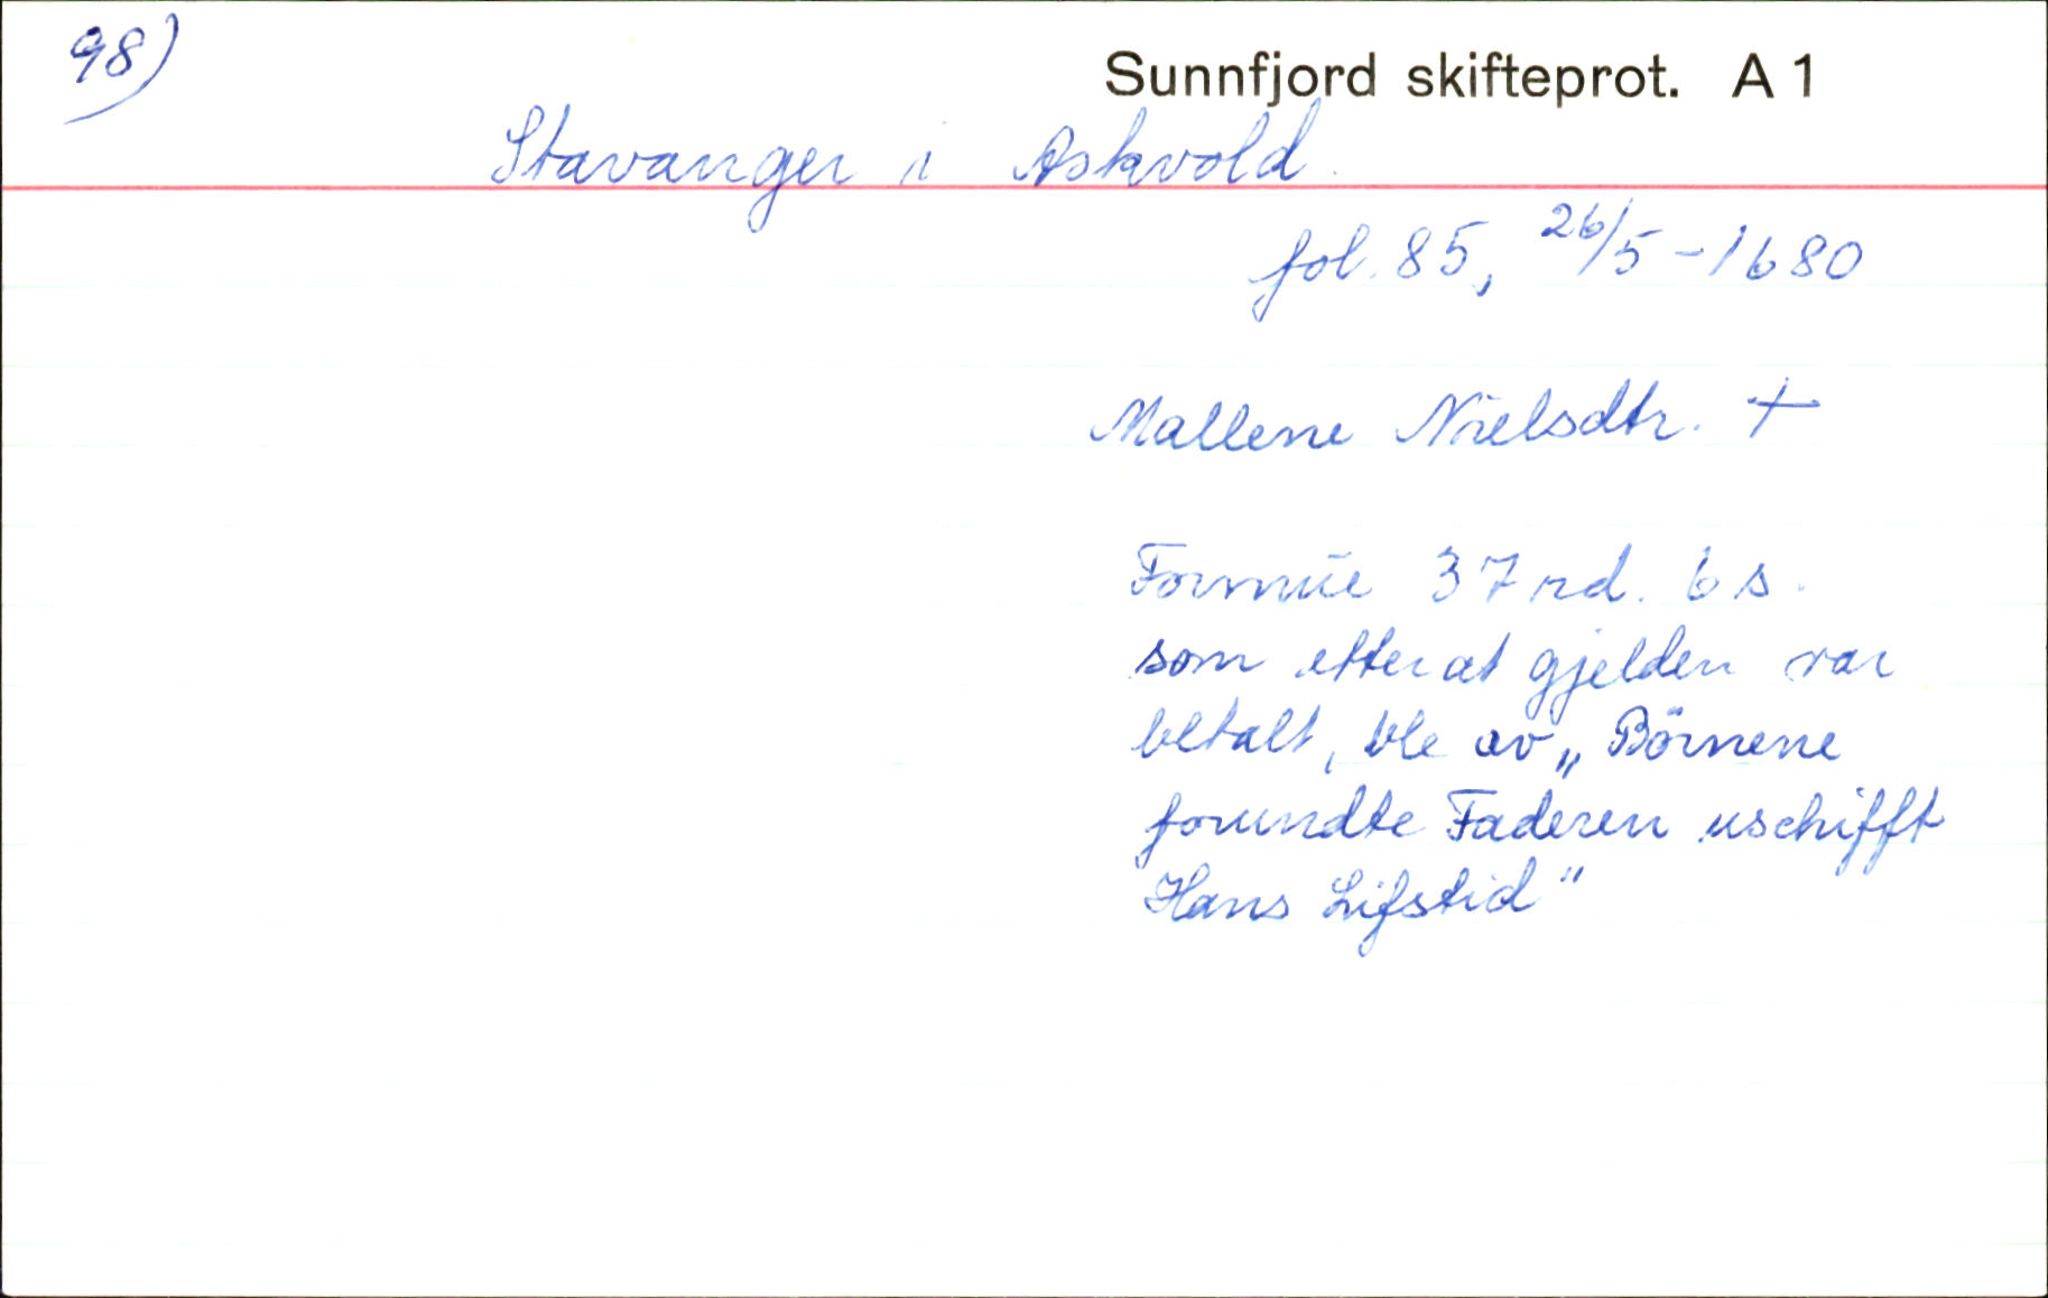 98)
Sunnfjord skifteprot. A 1
Stavanger i Askvold.
fol. 85, 26/5-1680
Mallene Nielsdtr. +
Formue 37 rd. 6 s.
som etter at gjelden var
betalt, ble av „Börnene
forundte Faderen uschifft
Hans Lifstid"